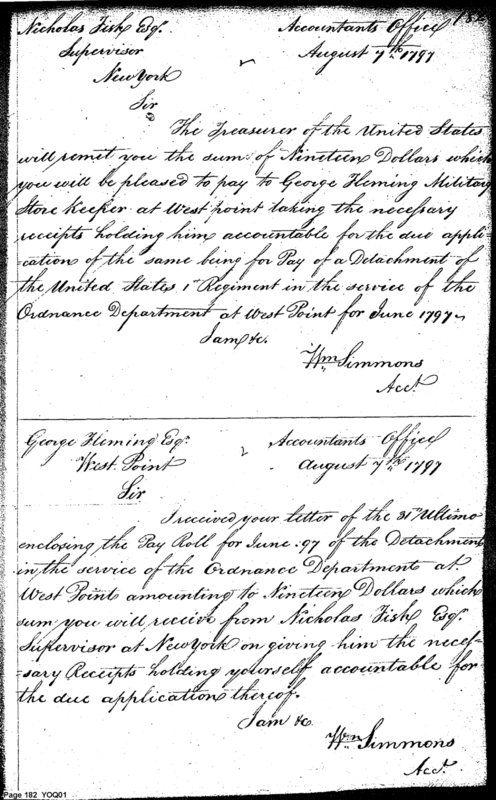 Nicholas Fish Esqr. Accountants Office
Supervisor August 7th 1797
New York
Sir
The Treasurer of the United States
will remit you the sum of Nineteen Dollars which
you will be pleased to pay to George Fleming Military
Store Keeper at West point taking the necessary
receipts holding him accountable for the due appli-
=cation of the same being for Pay of a Detachment of
the United States 1t Regiment in the service of the
Ordnance Department at West Point for June 1797
I am &c.
Wm Simmons
Acct.
George Fleming Esqr. Accountants Office
West Point August 7th 1797
Sir
I received your letter of the 31st Ultimo
enclosing the Pay Roll for June 97 of the Detachment
in the service of the Ordnance Department at
West Point amounting to Nineteen Dollars which
sum you will receive from Nicholas Fish Esqr.
Supervisor at New York on giving him the neces-
=sary Receipts holding yourself accountable for
the due application thereof.
I am &c
Wm Simmons
Acct.
Page 182 YOQ01